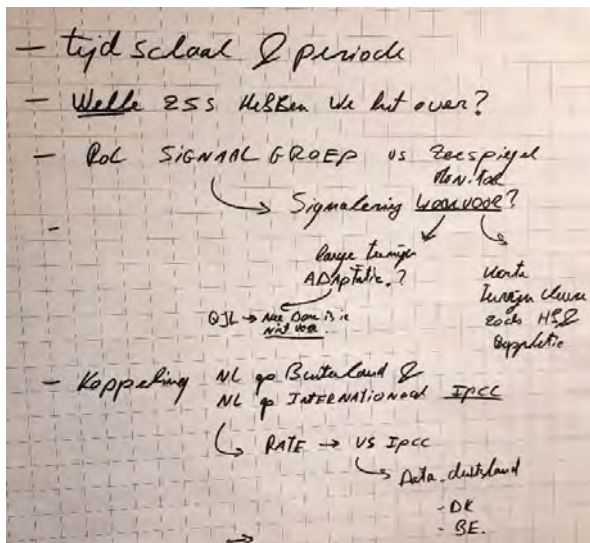 - tijdschaal & periode
- Welke ZSS Hebben We het over?
- Rol SIGNAAL GROEP vs Zeespiegel
Monitor
Signalering waarvoor?
lange termijn
ADAptatie.?
korte
termijn
zoals
suppletie
→ Nee Daar is ie
niet voor.
- Koppeling NL op Buitenland &
NL op INTERNATIONAAL IPCC
RATE → VS IPCC
Data duitsland
- DK
- BE.